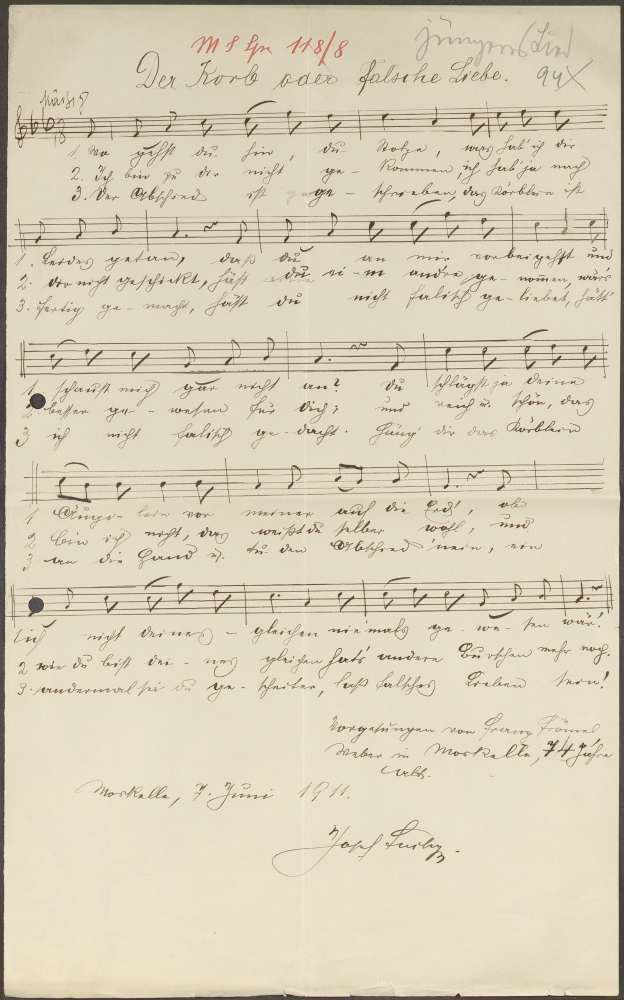 118/8
jüngeres Lied
Der Korb oder falsche Liebe.
94 X
Mäßig
1. Wo gehst du hin, du Stolze, was hab' ich dir
2. Ich bin zu dir nicht ge- kommen, ich hab' ja nach
3. Der Abschied ist ge- schrieben, das Körblein ist
1. Leides getan, daß du an mir vorbeigehst und
2. dir nicht geschickt, hätt' du ei-n andre ge- nommen, wär's
3. fertig ge- macht, hätt' du nicht falsch ge- liebet, hätt'
1. schaust mich gar nicht an? Du schlägst ja deine
2. besser ge- wesen für dich; und reich u. schön, das
3 ich nicht falsch ge- dacht. Häng' dir das Körblein
1 Äuge- lein vor meiner auf die Erd', ob
2 bin ich nicht, das weißt du selber wohl, und
3 an die Hand u. tu den Abschied 'nein, ein
1 ich nicht deines- gleichen niemals ge- we- sen wär'.
2 wie du bist dei- nes gleichen hat's andere Burschen mehr noch.
3. andermal sei du ge- scheiter, laß falsches Lieben sein!
Vorgesungen von Franz
Weber in Morkelle, 74 Jahre
alt.
Morkelle, 7. Juni 1911.
Josef